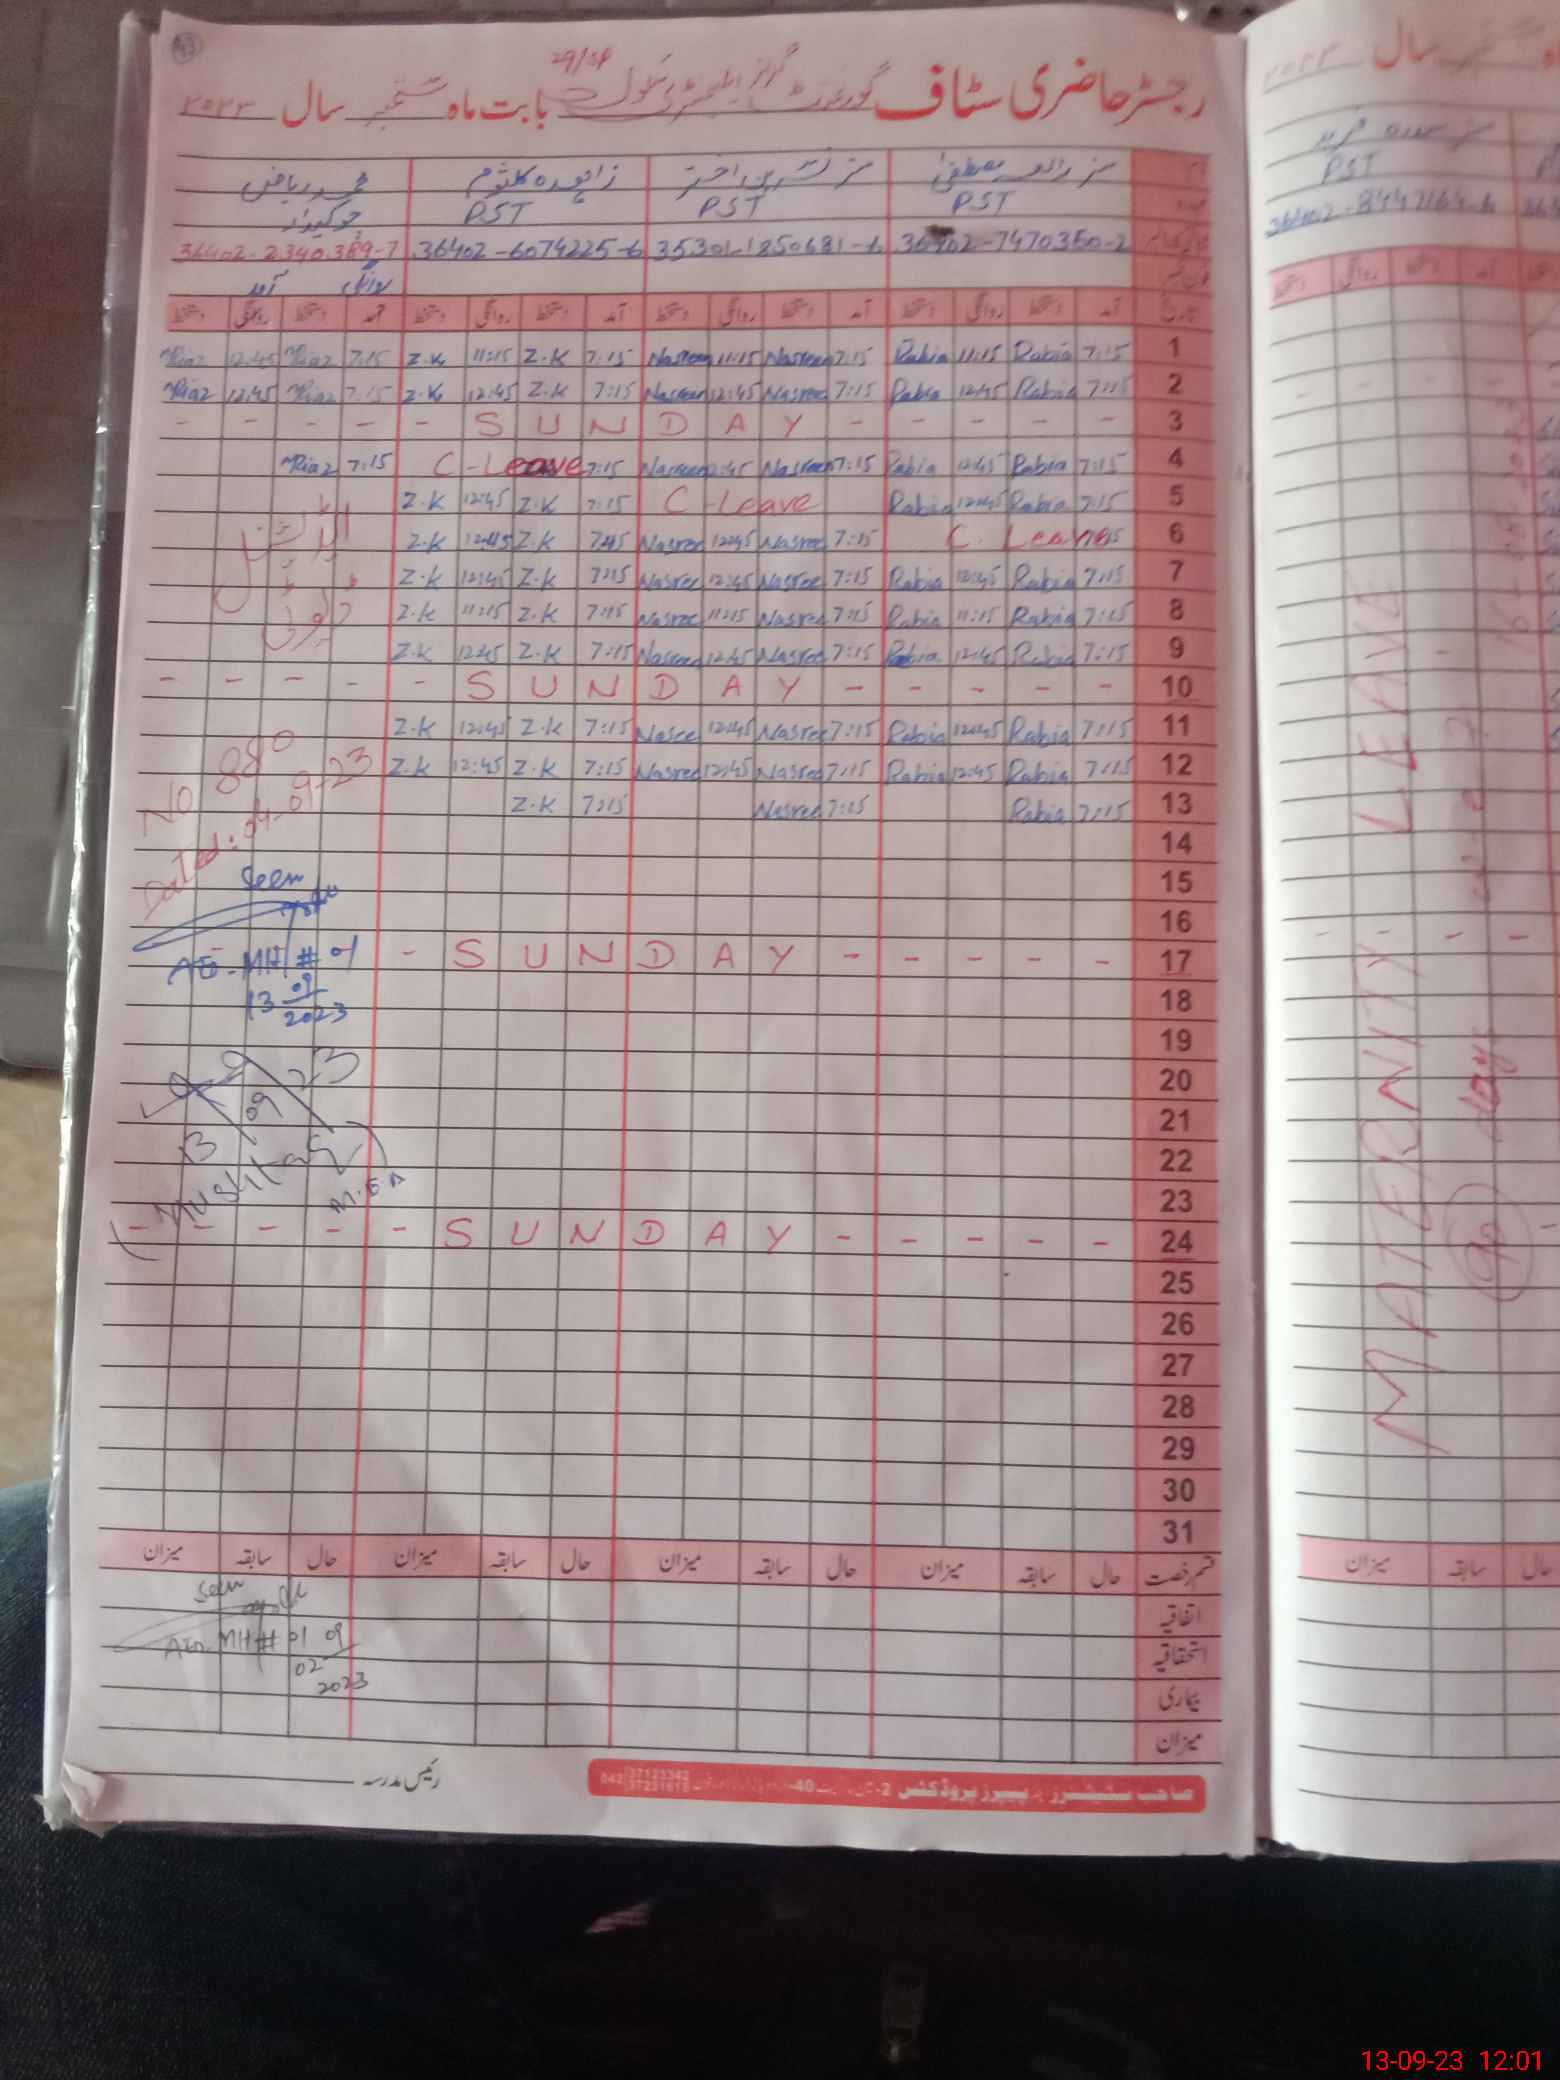 رجسٹر حاضری سٹاف گورنمنٹ گرلز ایلیمنٹری سکول 29/SP بابت ماہ ستمبر سال ۲۰۲۳
مسز رابعہ مصطفیٰ مسز نسرین اختر زاہدہ کلثوم محمد ریاض
PST PST PST چوکیدار
36402-7470360-2 35301-1850681-6 36402-6074225-6 36402-2340389-7
روانگی آمد
آمد دستخط روانگی دستخط آمد دستخط روانگی دستخط آمد دستخط روانگی دستخط آمد دستخط روانگی دستخط
Riaz 12:45 Riaz 7:15 Z.K 11:15 Z.K 7:15 Nasreen 11:15 Nasreen 7:15 Rabia 11:15 Rabia 7:15 1
Riaz 12:45 Riaz 7:15 Z.K 12:45 Z.K 7:15 Nasreen 12:45 Nasreen 7:15 Rabia 12:45 Rabia 7:15 2
- - - - - S U N D A Y - - - - - 3
Riaz 7:15 C-Leave 7:15 Nasreen 12:45 Nasreen 7:15 Rabia 12:45 Rabia 7:15 4
Z.K 12:45 Z.K 7:15 C-Leave Rabia 12:45 Rabia 7:15 5
Z.K 12:45 Z.K 7:45 Nasree 12:45 Nasree 7:15 C. Leave 6
Z.K 12:45 Z.K 7:15 Nasree 12:45 Nasree 7:15 Rabia 12:45 Rabia 7:15 7
Z.K 11:15 Z.K 7:15 Nasree 11:15 Nasree 7:15 Rabia 11:15 Rabia 7:15 8
Z.K 12:45 Z.K 7:15 Nasree 12:45 Nasree 7:15 Rabia 12:45 Rabia 7:15 9
- - - - - S U N D A Y - - - - - 10
Z.K 12:45 Z.K 7:15 Nasree 12:45 Nasree 7:15 Rabia 12:45 Rabia 7:15 11
Z.K 12:45 Z.K 7:15 Nasree 12:45 Nasree 7:15 Rabia 12:45 Rabia 7:15 12
Z.K 7:15 Nasree 7:15 Rabia 7:15 13
No 880
Dated: 04-09-23
14
15
16
Seen
AEO-MH # 01
13 09
2023
- S U N D A Y - - - - - 17
18
19
20
21
22
23
13 09 23
(Mushtaq)
M.E.A
- - - - - S U N D A Y - - - - - 24
25
26
27
28
29
30
31
قسم رخصت حال سابقہ میزان حال سابقہ میزان حال سابقہ میزان حال سابقہ میزان
اتفاقیہ
استحقاقیہ
بیماری
میزان
Seen
AEO MH# 01 09
02
2023
رئیس مدرسہ
37123342
042
PST
36402-8447164-6
MATERNITY LEAVE
90 days
میزان سابقہ حال
13-09-23 12:01